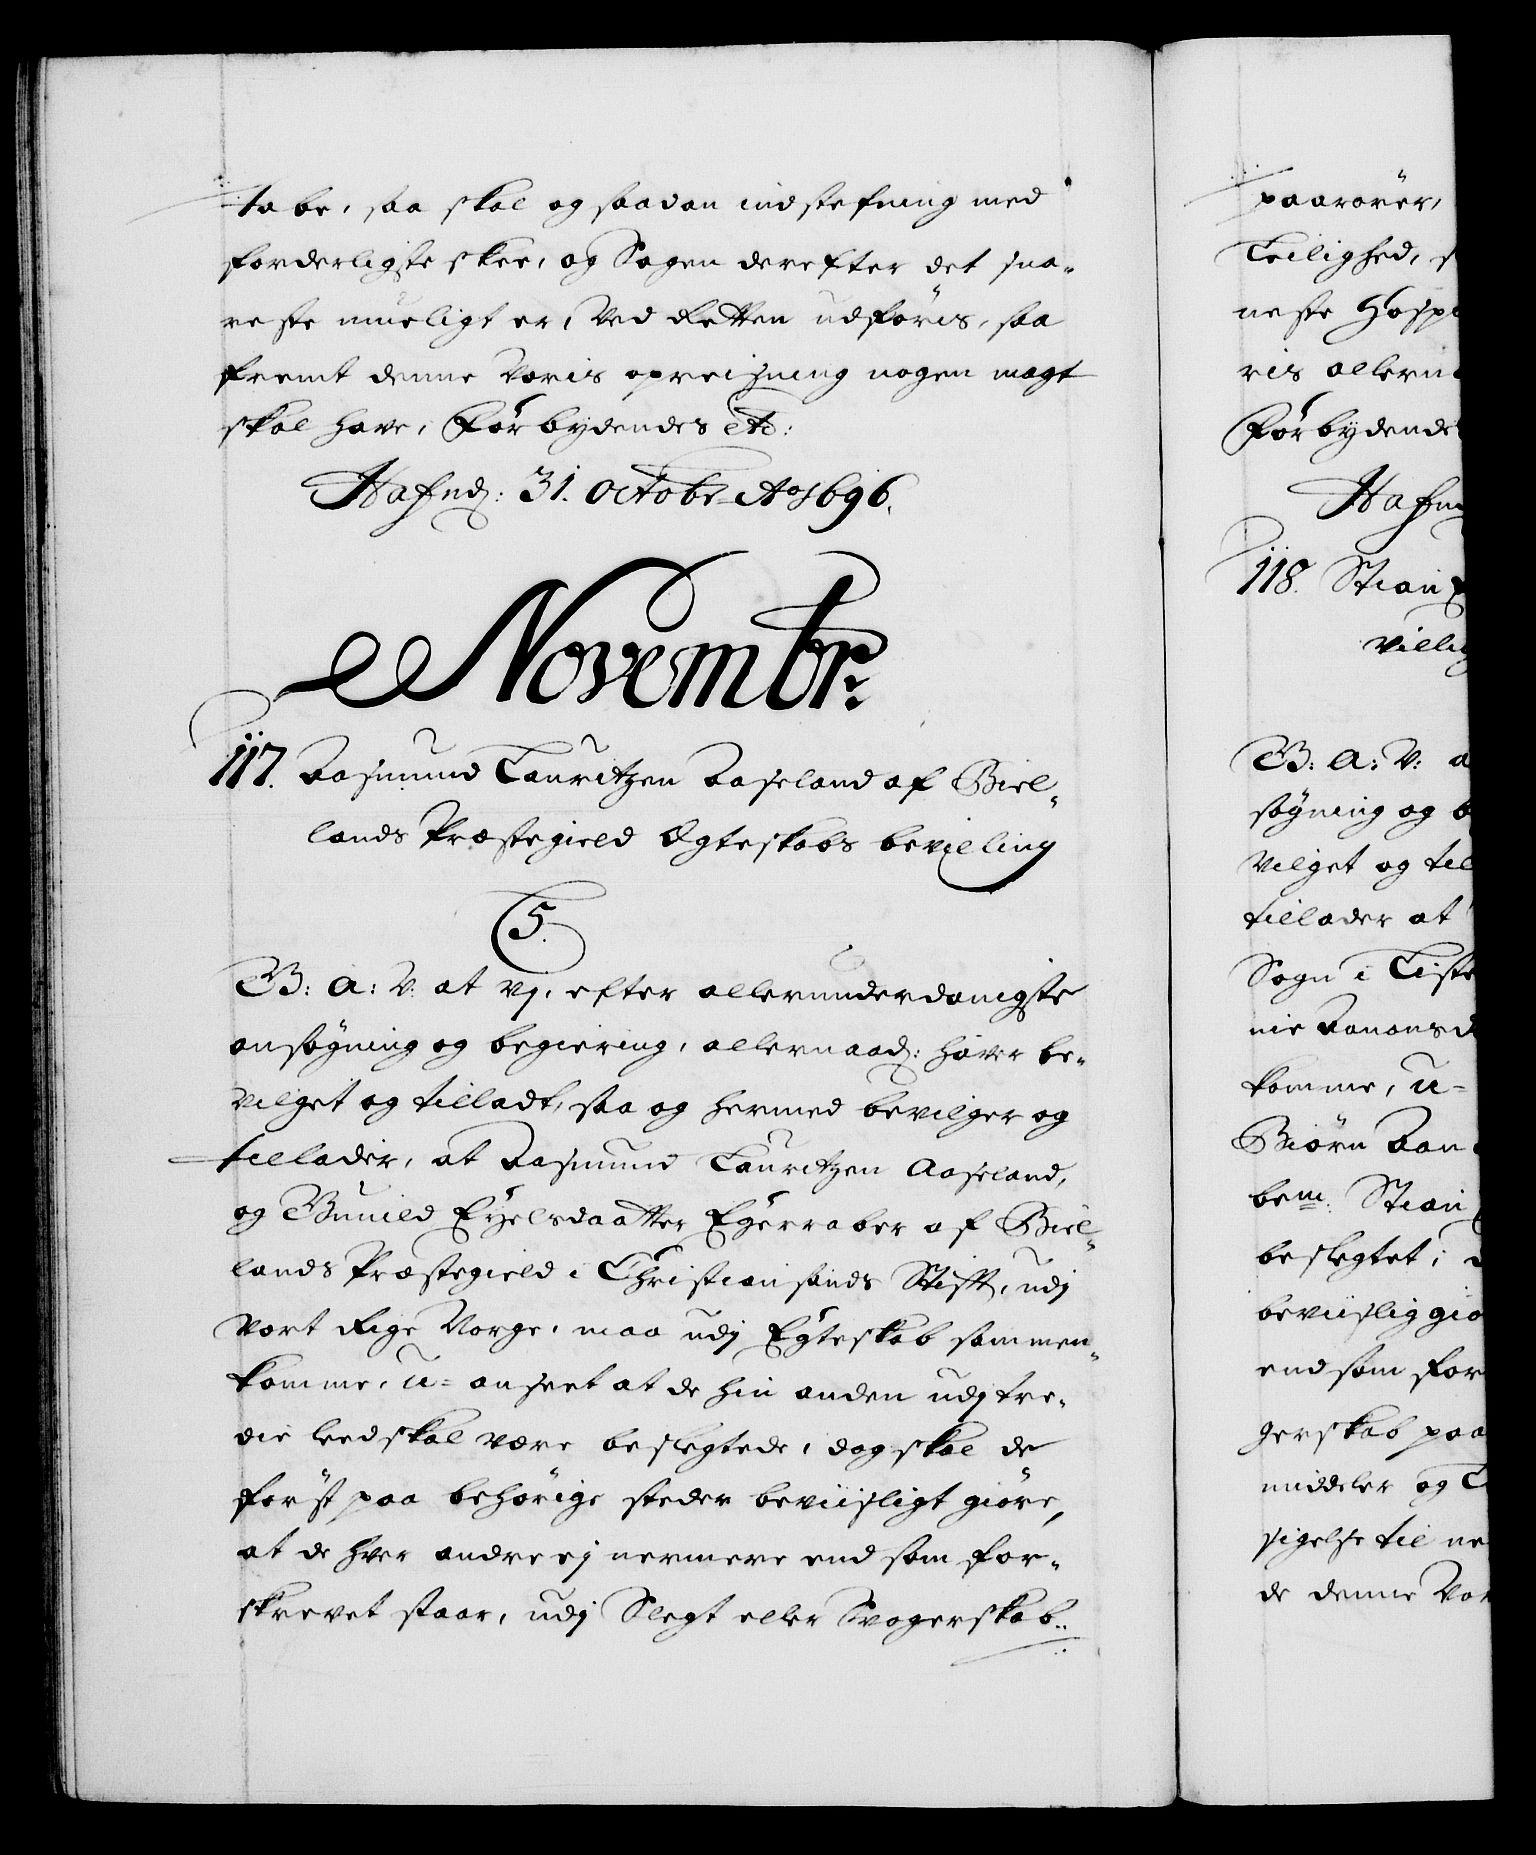 tabe, saa skal og saadan indstefning med
forderligste skee, og Sagen derefter det sna-
reste mueligt er, Ved Retten udføris, saa
fremt denne Voris opreisning nogen magt
skal have, Forbydendes etc:
Hafnd: 31. Octobr Ao 1696.
Novembr:
117. Aasmund Lauritzen Aaseland af Biel-
lands Præstegield Egteskabs bevilling
5.
B: A: V: at Vj, efter allerunderdanigste
ansøgning og begiering, allernaad: haver be-
vilget og tilladt, saa og hermed bevilger og
tillader, at Aasmund Lauritzen Aaseland,
og Gunild Eyelsdaatter Egerraber af Biel-
lands Præstegield i Christiansands Stift, udj
Vort Rige Norge, maa udj Egteskab sammen-
komme, u-anseet at de hin anden udj tre-
die leed skal være beslegtede, dog skal de
først paa behørige steder beviisligt giøre,
at de hver andre ej nermere end som for-
skrevet staar, udj Slegt eller Svogerskab
paarører,
Leilighed, s
neste Hospi
ris allern
Forbydendes
Hafn
118. Stian
villig
B: A: V: a
søgning og b
vilget og til
tillader at
Sogn i Liste
nie Aanonsd
komme, u-
Biørn Aan
bem: Stian
beslegtet; d
beviislig giø
end som for
gerskab paa
middeler og L
sigelse til ne
de denne Vor